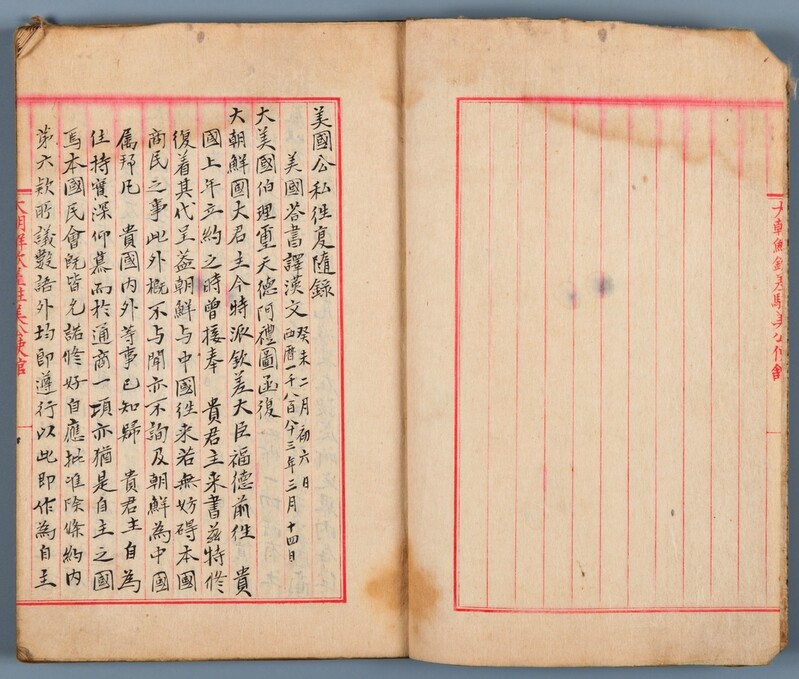 美國公私往復隨錄
美國答書譯漢文 癸未二月初六日
西曆一千八百八十三年三月十四日
大美國伯理璽天德阿禮圖函復
大朝鮮國大君主今特派欽差大臣福德前往 貴
國上年立約之時曾接奉 貴君主来書茲特修
復着其代呈蓋朝鮮与中國往来若無妨碍本國
商民之事此外概不与聞亦不詢及朝鮮為中國
属邦凡 貴國内外等事已知歸 貴君主自為
住持實深仰慕而於通商一項亦猶是自主之國
焉本國民會既皆允諾修好自應批准除條約内
第六款所議數語外均即遵行以此即作為自主
大朝鮮欽差駐美公使館